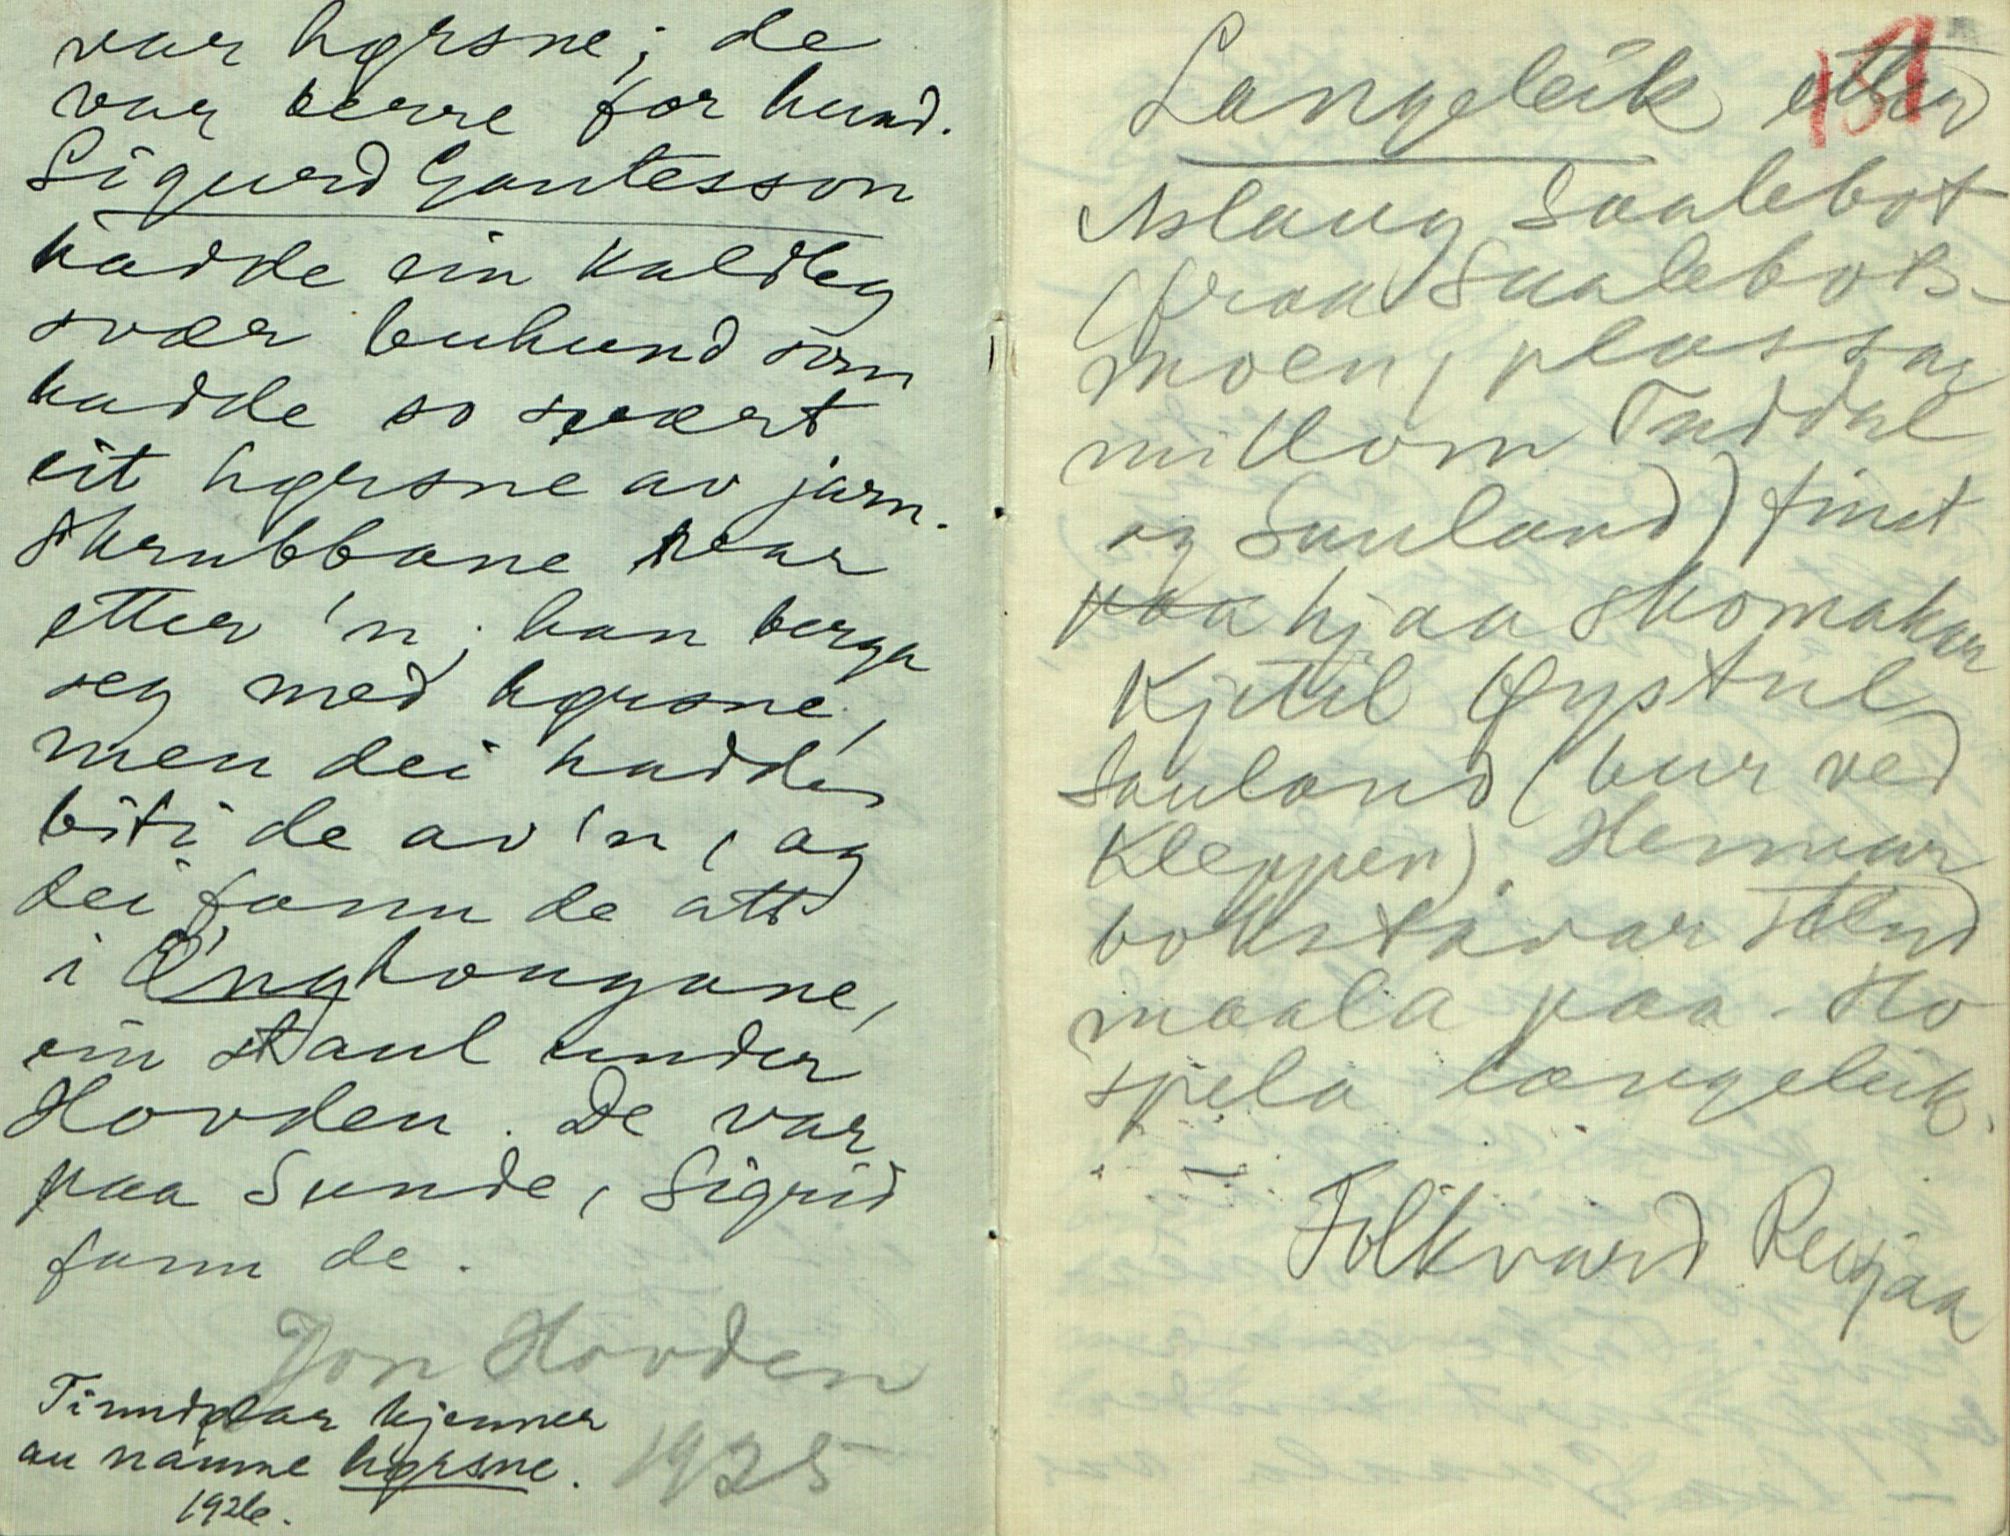 var hørsne; de
var berre for hund.
Sigurd Gautesson
hadde ein kaldleg
svær buhund som
hadde so svært
eit hørsne av jarn.
Skrubbane var
etter 'n; han berga
seg med hørsne,
men dei hadde
biti de av 'n, og
dei fann de att
i Enghougane,
ein staul under
Hovden. De var
paa Sunde, Sigrid
fann de.
Jon Hovden
1925
Tinndølar kjenner
au namne hørsne.
1926.
151
Langeleik etter
Aslaug Saalebot
(fraa Saalebots-
moen, plass
millom Tuddal
og Sauland) finst
paa hjaa skomakar
Kjetil Øystul
Sauland (bur ved
Kleppen). Hennar
bokstavar stend
maala paa. Ho
spela langeleik.
Folkvard Reisjaa